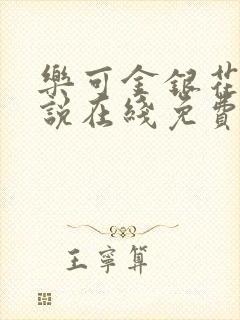 樂可金銀花
説在綫免費
王寧算